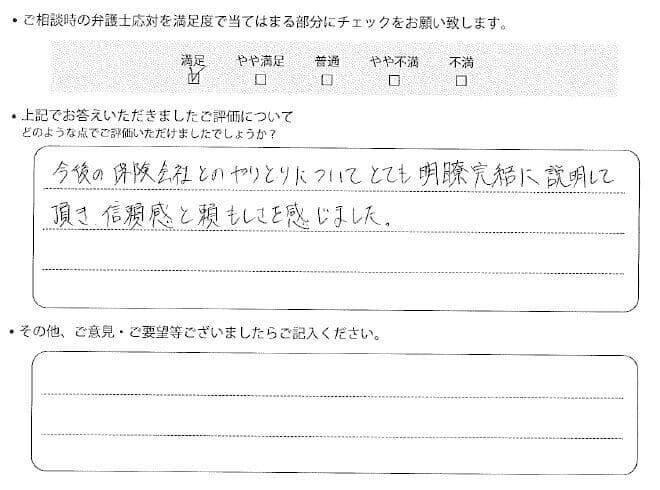 • ご相談時の弁護士応対を満足度で当てはまる部分にチェックをお願い致します。
満足 やや満足 普通 やや不満 不満
☑ ☐ ☐ ☐ ☐
• 上記でお答えいただきましたご評価について
どのような点でご評価いただけましたでしょうか?
今後の保険会社とのやりとりについてとても明瞭完結に説明して
頂き信頼感と頼もしさを感じました。
• その他、ご意見・ご要望等ございましたらご記入ください。